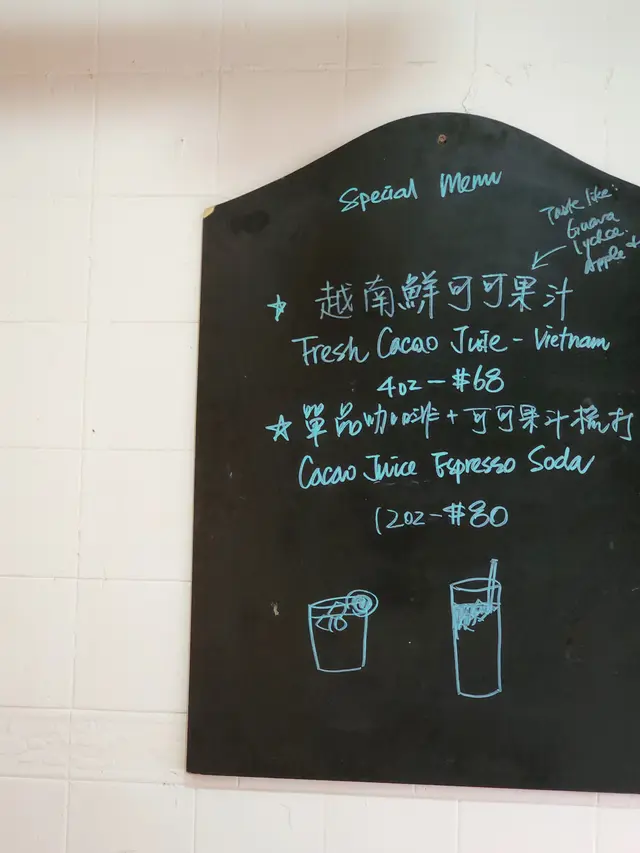 Special Menu
Taste like:
Guava
Lychee
Apple &
★ 越南鮮可可果汁
Fresh Cacao Juie - Vietnam
4oz - #68
★ 單品咖啡 + 可可果汁梳打
Cacao Juice Espresso Soda
12oz - #80